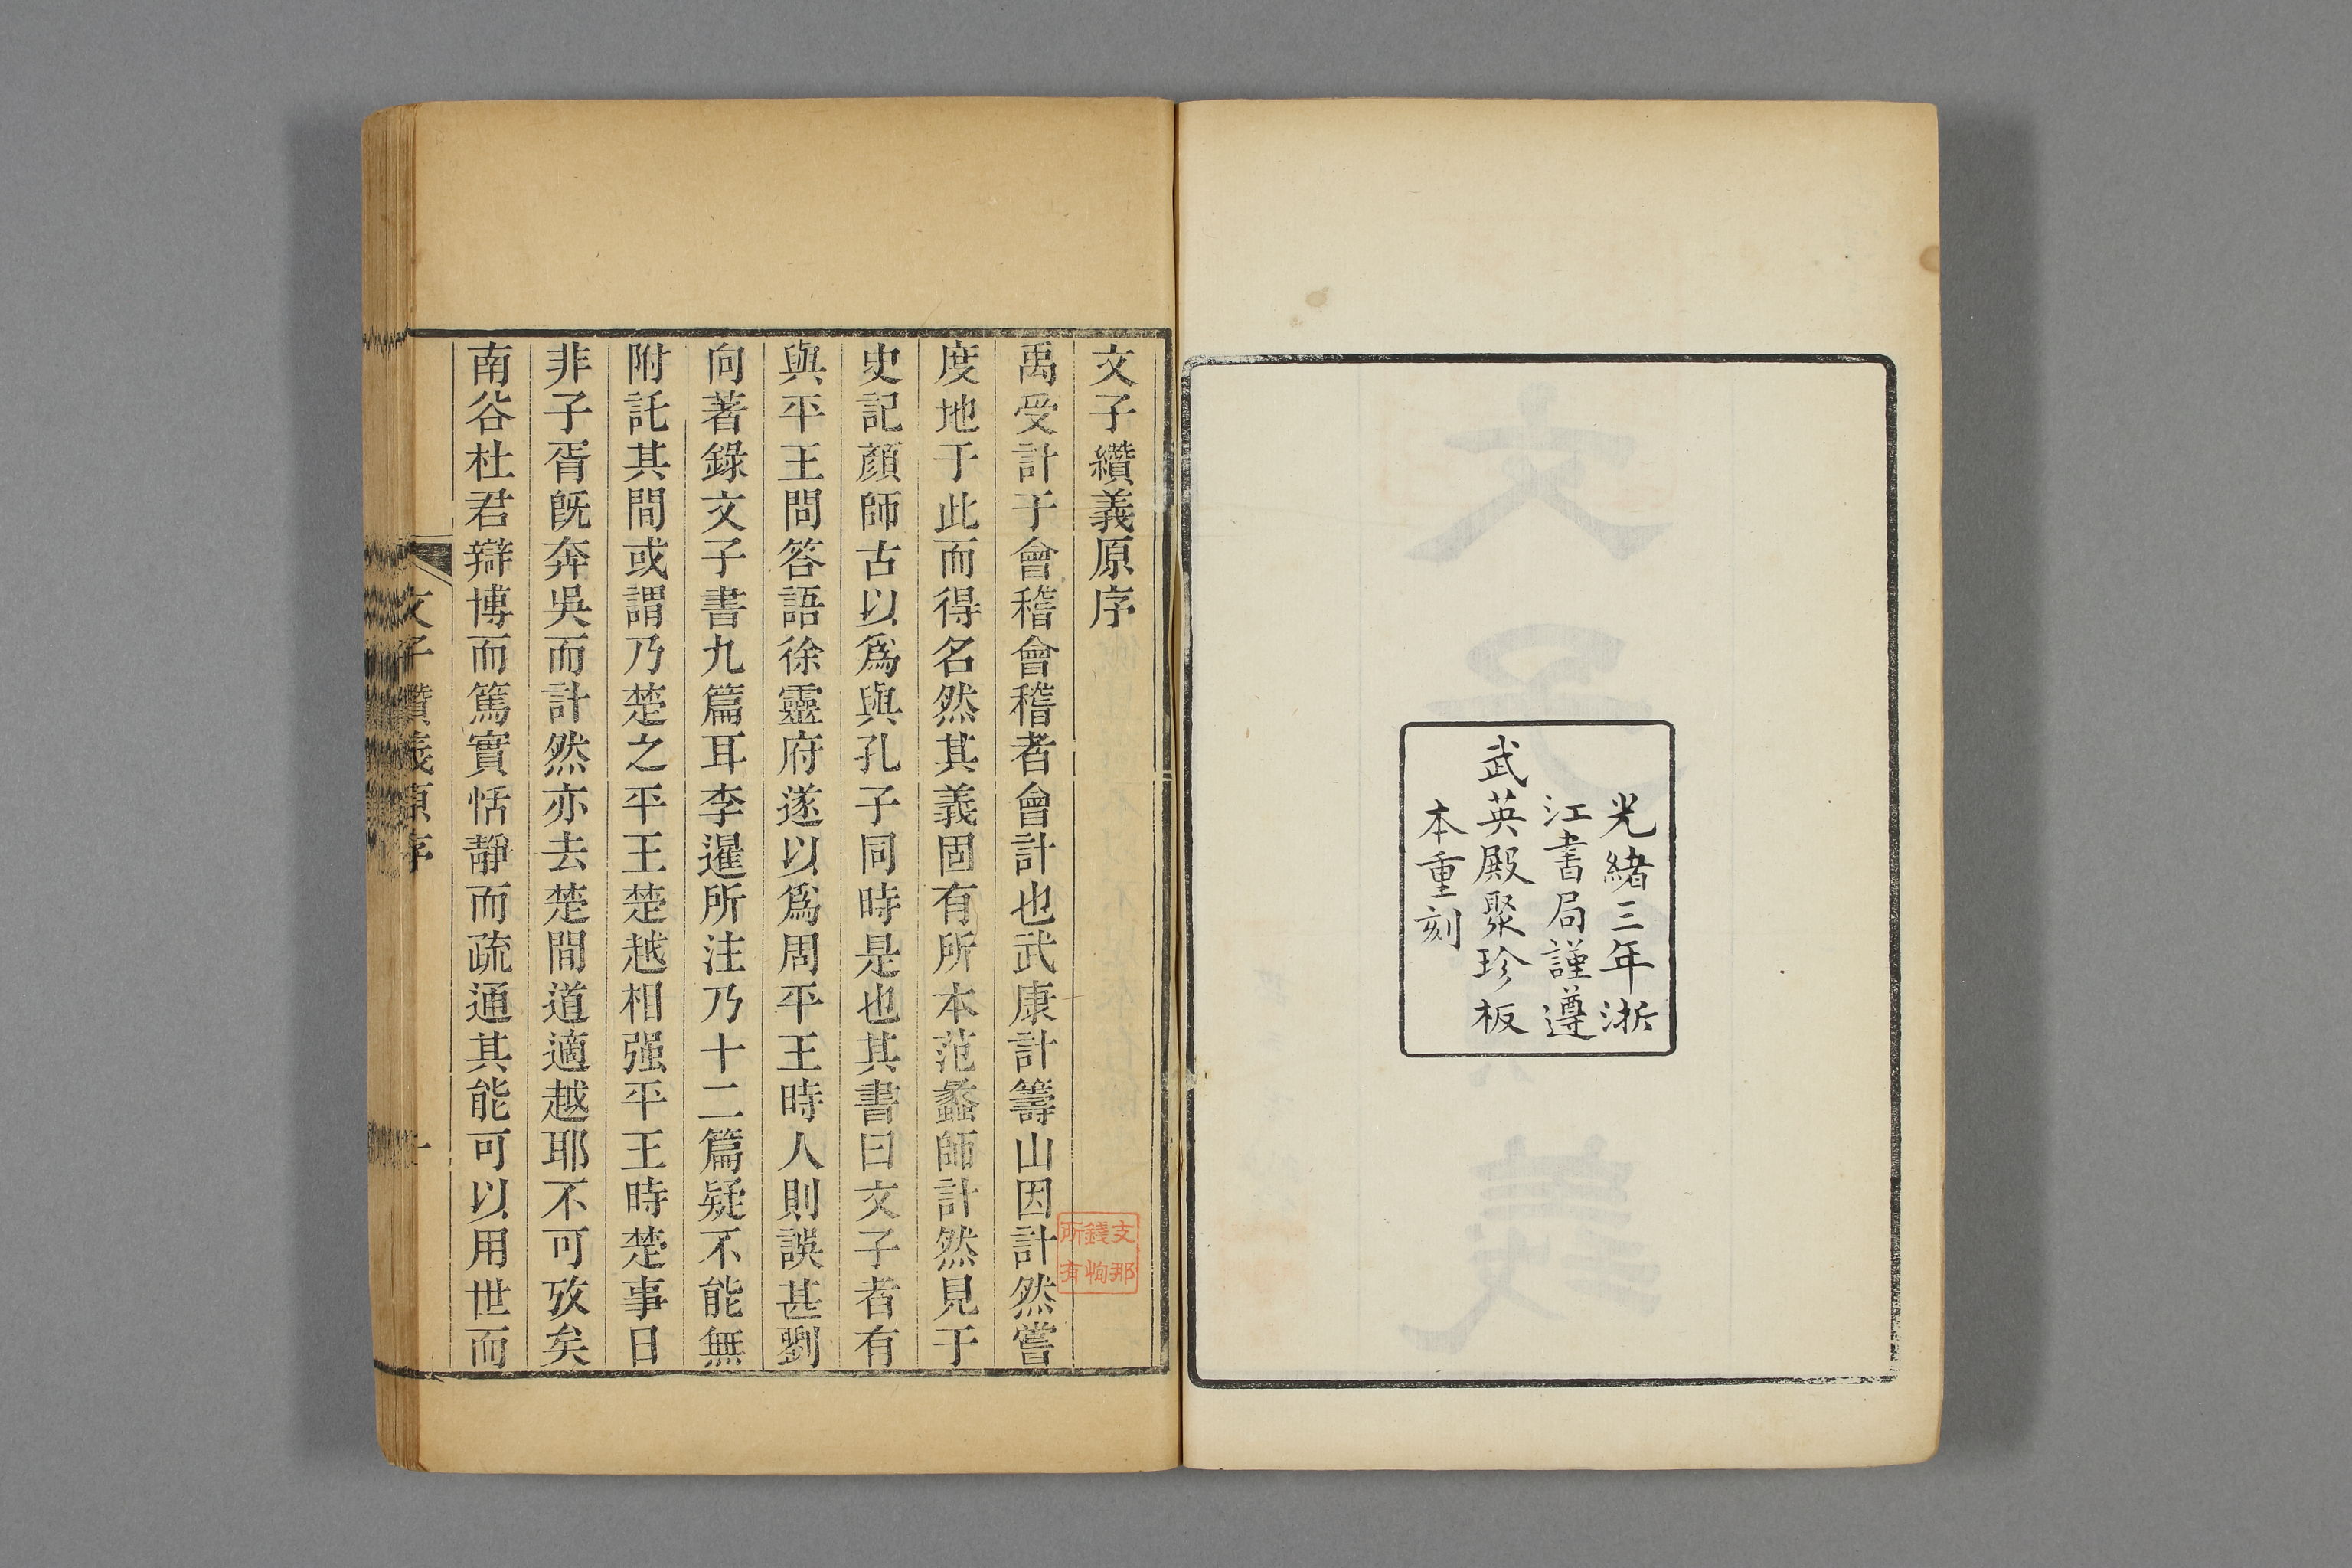 光緒三年浙
江書局謹遵
武英殿聚珍板
本重刻
文子纘義原序
禹受計于會稽會稽者會計也武康計籌山因計然嘗
度地于此而得名然其義固有所本范蠡師計然見于
史記顏師古以爲與孔子同時是也其書曰文子者有
與平王問答語徐靈府遂以爲周平王時人則誤甚劉
向著錄文子書九篇耳李暹所注乃十二篇疑不能無
附託其間或謂乃楚之平王楚越相强平王時楚事日
非子胥旣奔吳而計然亦去楚間道適越耶不可攷矣
南谷杜君辯博而篤實恬靜而疏通其能可以用世而
文子纘義原序
一
支那
錢恂
所有